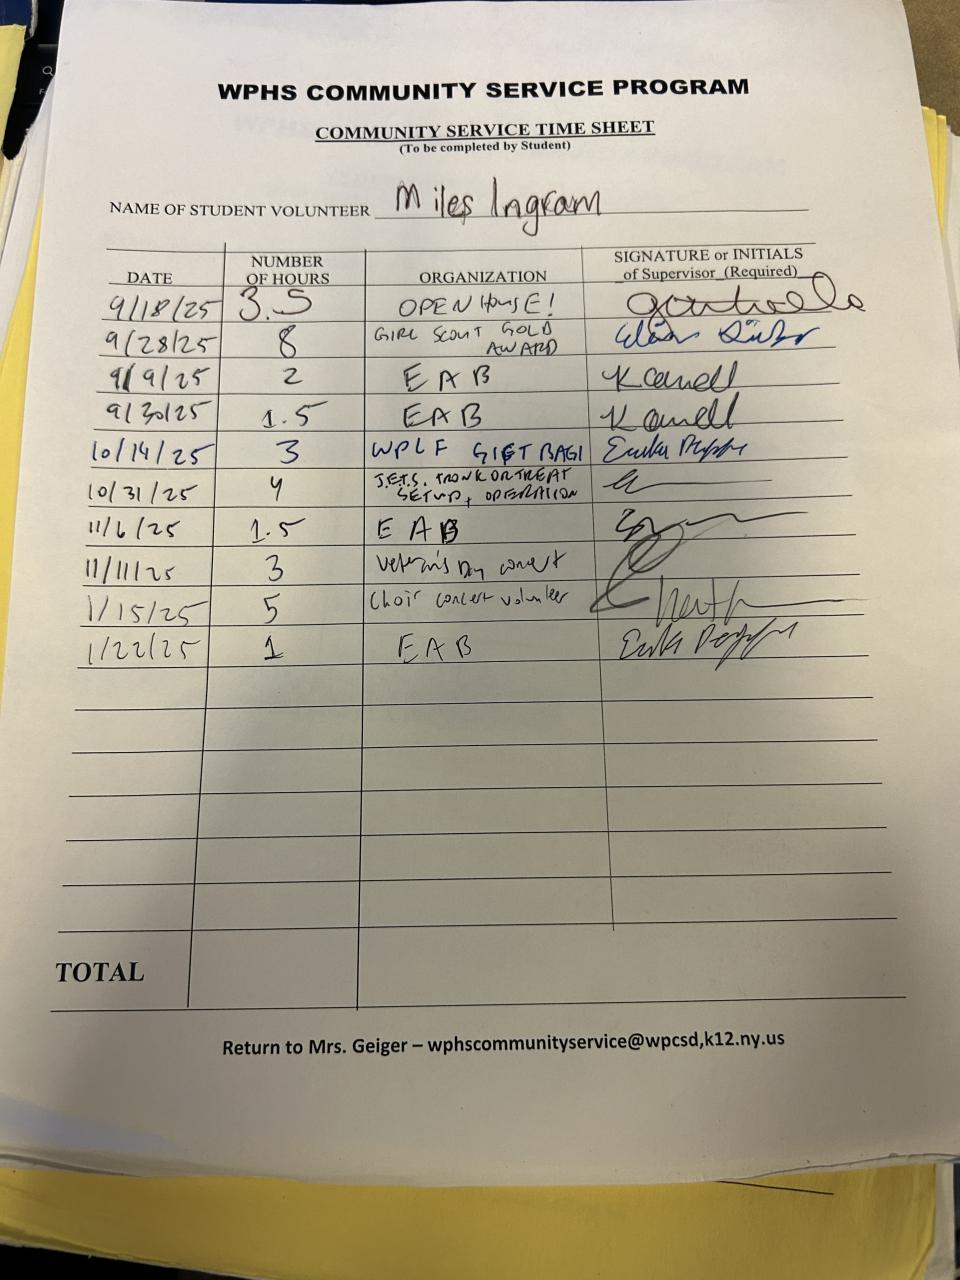 WPHS COMMUNITY SERVICE PROGRAM
COMMUNITY SERVICE TIME SHEET
(To be completed by Student)
NAME OF STUDENT VOLUNTEER Miles Ingram
DATE NUMBER OF HOURS ORGANIZATION SIGNATURE or INITIALS of Supervisor (Required)
9/18/25 3.5 OPEN HOUSE!
9/28/25 8 GIRL SCOUT GOLD AWARD
9/9/25 2 EAB
9/30/25 1.5 EAB
10/14/25 3 WPLF GIFT BAG
10/31/25 4 J.E.T.S. TRONK OR TREAT SETUP, OPERATION
11/6/25 1.5 EAB
11/11/25 3 Veteran's Day concert
1/15/25 5 Choir concert volunteer
1/22/25 1 EAB
TOTAL
Return to Mrs. Geiger – wphscommunityservice@wpcsd,k12.ny.us